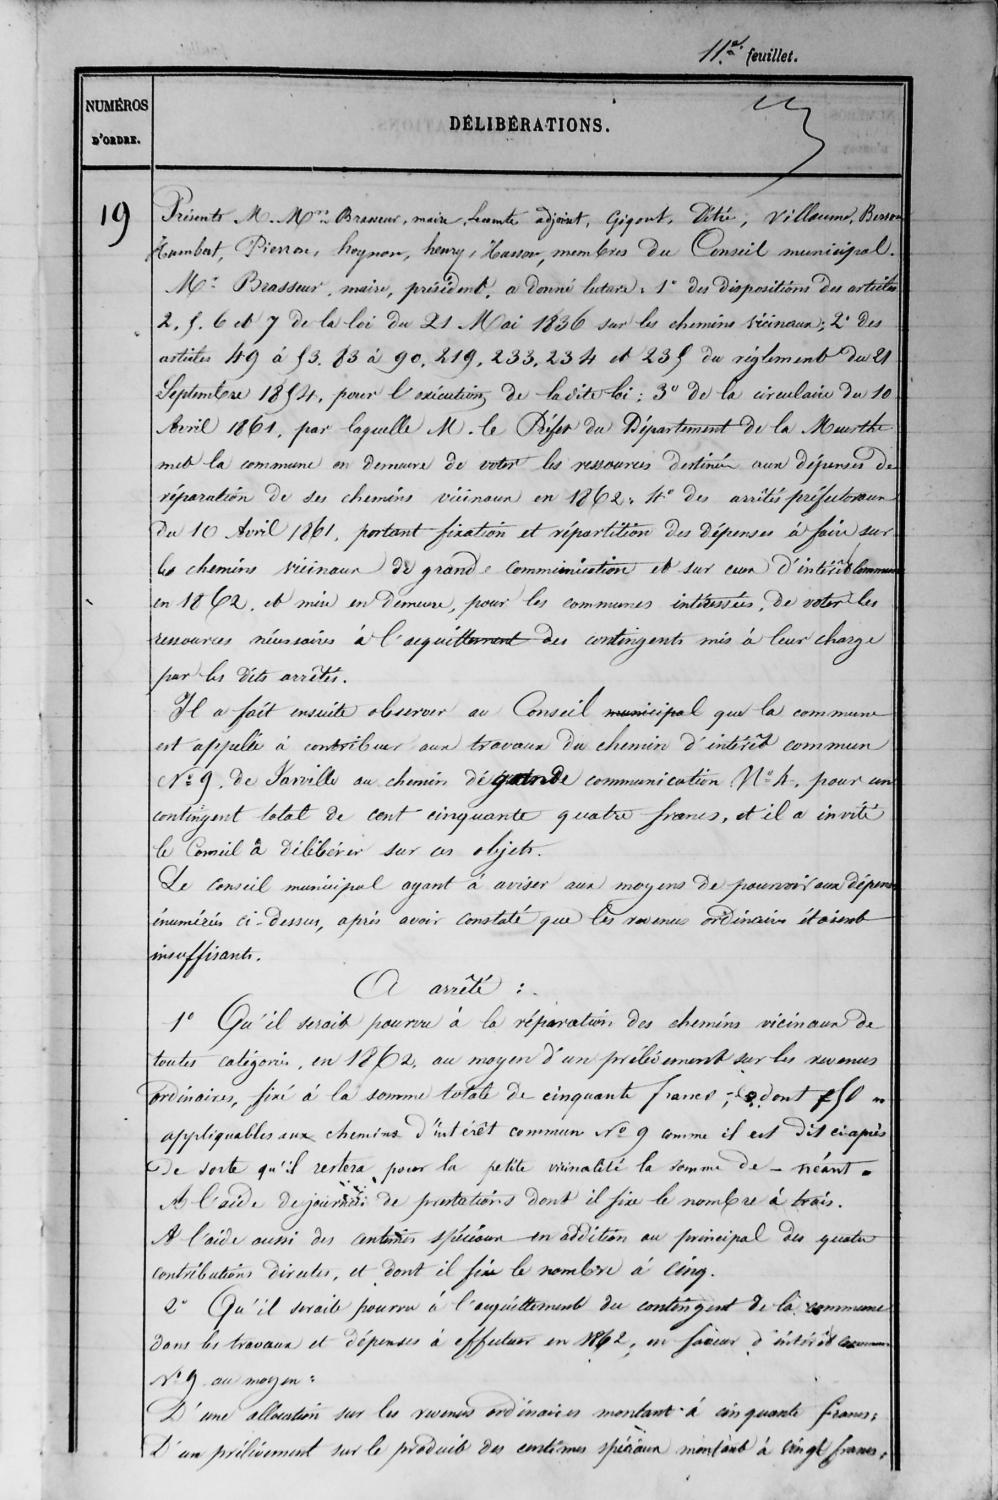 11.e feuillet.
NUMÉROS
D'ORDRE.
DÉLIBÉRATIONS.
19
Présents M. M.rs Brasseur, maire, Lecomte adjoint, Gigout, Villaume, Berson
Humbert, Pierron, hoynon, henry, Masson, membres du Conseil municipal.
M.r Brasseur, maire, président, a donné lecture : 1° des dispositions des articles
2. 5. 6 et 7 de la loi du 21 Mai 1836 sur les chemins vicinaux ; 2° des
articles 49 à 53. 83 à 90. 219. 233. 234 et 235 du réglement du 21
Septembre 1854, pour l'exécution de la dite loi ; 3° de la circulaire du 10
Avril 1861, par laquelle M. le Préfet du Département de la Meurthe
met la commune en demeure de voter les ressources destinées aux dépenses de
réparation de ses chemins vicinaux en 1862 ; 4° des arrêtés préfectoraux
du 10 Avril 1861, portant fixation et répartition des dépenses à faire sur
les chemins vicinaux de grande communication et sur ceux d'intérêt commun
en 1862, et mise en demeure, pour les communes intéressées, de voter les
ressources nécessaires à l'acquittement des contingents mis à leur charge
par les dits arrêtés.
Il a fait ensuite observer au Conseil municipal que la commune
est appellée à contribuer aux travaux du chemin d'intérêt commun
N° 9, de Jarville au chemin de grande communication N° 4, pour un
contingent total de cent cinquante quatre francs, et il a invité
le Conseil à délibérer sur ces objets.
Le conseil municipal ayant à aviser aux moyens de pourvoir aux dépenses
énumérées ci-dessus, après avoir constaté que les revenus ordinaires étaient
insuffisants.
A arrêté :
1° Qu'il serait pourvu à la réparation des chemins vicinaux de
toutes catégories, en 1862, au moyen d'un prélèvement sur les revenus
ordinaires, fixé à la somme totale de cinquante francs ; dont 50 "
appliquables aux chemins d'intérêt commun N° 9 comme il est dit ci-après
de sorte qu'il restera pour la petite vicinalité la somme de - néant.
A l'aide de journées de prestations dont il fixe le nombre à trois.
A l'aide aussi des centimes spéciaux en addition au principal des quatre
contributions directes, et dont il fixe le nombre à cinq.
2° Qu'il serait pourvu à l'acquittement du contingent de la commune
dans les travaux et dépenses à effectuer en 1862, en faveur d'intérêt commun
N° 9 au moyen :
D'une allocation sur les revenus ordinaires montant à cinquante francs ;
D'un prélèvement sur le produit des centimes spéciaux montant à vingt francs ;